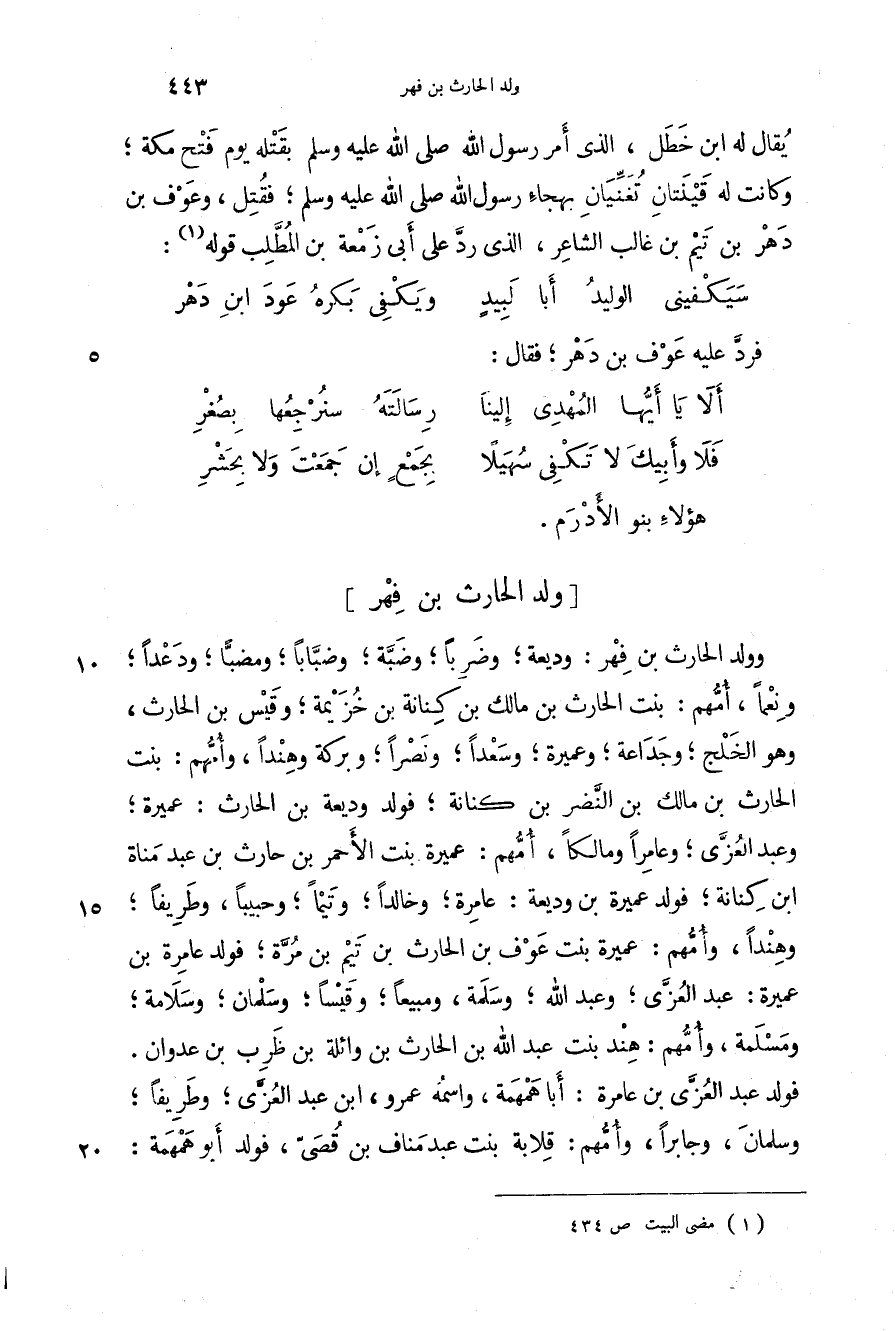 ولد الحارث بن فهر ٤٤٣
يُقال له ابن خَطَل ، الذى أَمر رسول الله صلى الله عليه وسلم بقَتْله يوم فَتْح مكة ؛
وكانت له قَيْنَتانِ تُغَنِّيَانِ بهجاءِ رسول الله صلى الله عليه وسلم ؛ فقُتِل ، وعَوْف بن
دَهْر بن تَيْم بن غالب الشاعر ، الذى ردَّ على أَبى زَمْعة بن المُطَّلِب قوله(١) :
سَيَكْفينى الوليدُ أَبا لَبِيدٍ ويَكْفِى بَكرهُ عَودَ ابنِ دَهْر
فردَّ عليه عَوْف بن دَهْر ؛ فقال : ٥
أَلَا يَا أَيُّها المُهْدِى إِلينَا رِسَالَتَهُ سنُرْجِعُها بِصُغْرِ
فَلَا وأَبِيكَ لا تَكْفِى سُهَيلًا بِجَمْعٍ إن جَمَعْتَ وَلا بِحَشْرِ
هؤلاءِ بنو الأَدْرَم .
[ ولد الحارث بن فِهْر ]
وولد الحارث بن فِهْر : وديعة ؛ وضَرِباً ؛ وضَبَّة ؛ وضبَّاباً ؛ ومضبًّا ؛ ودَعْداً ؛ ١٠
ونِعْماً ، أُمُّهم : بنت الحارث بن مالك بن كِنانة بن خُزَيْمة ؛ وقَيْس بن الحارث ،
وهو الخَلْج ؛ وجَدَاعة ؛ وعميرة ؛ وسَعْداً ؛ ونَصْراً ؛ وبركة وهِنْداً ، وأُمُّهم : بنت
الحارث بن مالك بن النَّضر بن كنانة ؛ فولد وديعة بن الحارث : عميرة ؛
وعبد العُزَّى ؛ وعامراً ومالكاً ، أُمُّهم : عميرة بنت الأَحمر بن حارث بن عبد مَناة
ابن كِنانة ؛ فولد عميرة بن وديعة : عامِرة ؛ وخالداً ؛ وتَيْماً ؛ وحبيباً ، وطَرِيفاً ؛ ١٥
وهِنْداً ، وأُمُّهم : عميرة بنت عَوْف بن الحارث بن تَيْم بن مُرَّة ؛ فولد عامِرة بن
عميرة : عبد العُزَّى ؛ وعبد الله ؛ وسَلَمة ، ومبيعاً ؛ وقَيْساً ؛ وسَلْمان ؛ وسَلَامة ؛
ومَسْلَمة ، وأُمُّهم : هِنْد بنت عبد الله بن الحارث بن وائلة بن ظَرِب بن عدوان .
فولد عبد العُزَّى بن عامرة : أَبا هَمْهَمة ، واسمُه عمرو ، ابن عبد العُزَّى ؛ وطَرِيفاً ؛
وسلمانَ ، وجابراً ، وأُمُّهم : قلابة بنت عبد مَناف بن قُصَىّ ، فولد أَبو هَمْهَمة : ٢٠
(١) مضى البيت ص ٤٣٤